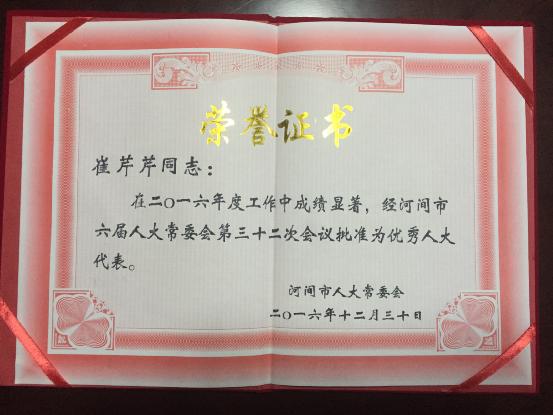 荣誉证书
崔芹芹同志：
在二〇一六年度工作中成绩显著，经河间市
六届人大常委会第三十二次会议批准为优秀人大
代表。
河间市人大常委会
二〇一六年十二月三十日